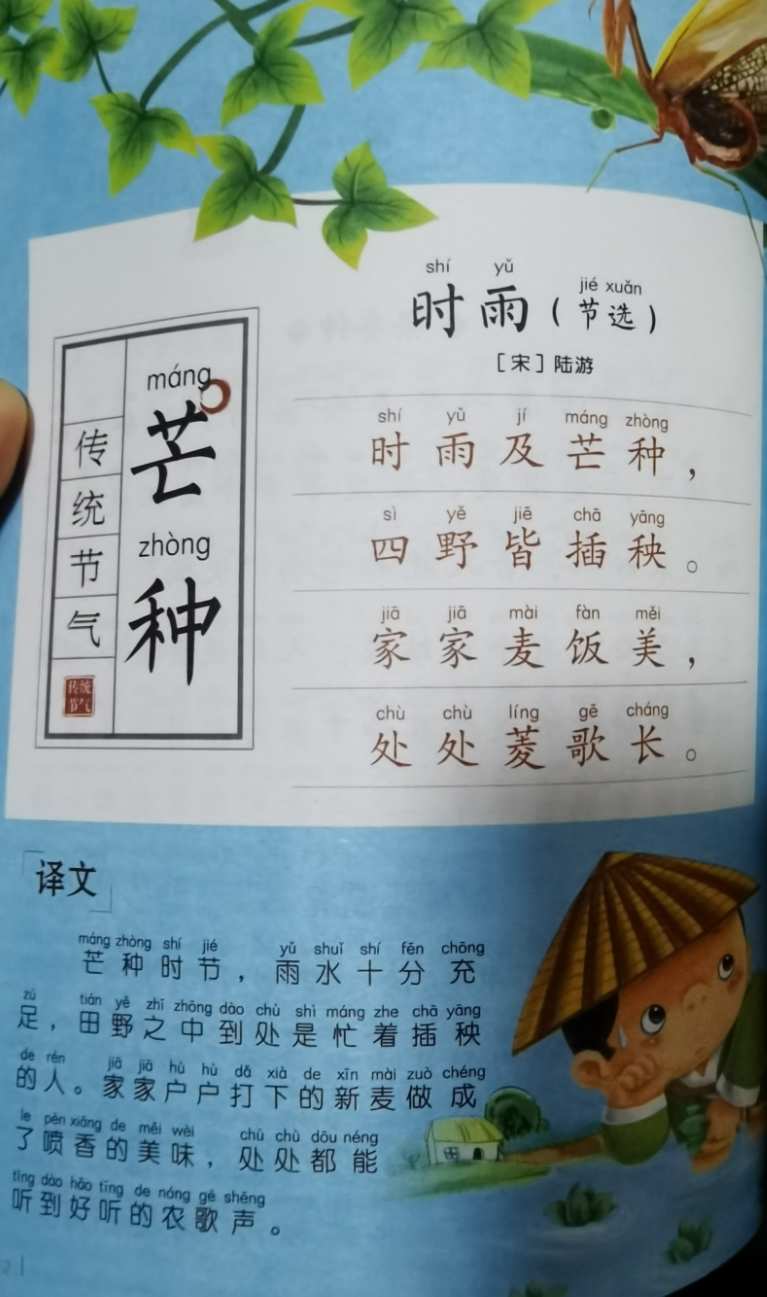 shí yǔ jié xuǎn
时雨（节选）
［宋］陆游
máng
芒
zhòng
种
传统节气
传统节气
shí yǔ jí máng zhòng
时雨及芒种，
sì yě jiē chā yāng
四野皆插秧。
jiā jiā mài fàn měi
家家麦饭美，
chù chù líng gē cháng
处处菱歌长。
译文
máng zhòng shí jié yǔ shuǐ shí fēn chōng
芒种时节，雨水十分充
zú tián yě zhī zhōng dào chù shì máng zhe chā yāng
足，田野之中到处是忙着插秧
de rén jiā jiā hù hù dǎ xià de xīn mài zuò chéng
的人。家家户户打下的新麦做成
le pēn xiāng de měi wèi chù chù dōu néng
了喷香的美味，处处都能
tīng dào hǎo tīng de nóng gē shēng
听到好听的农歌声。
2